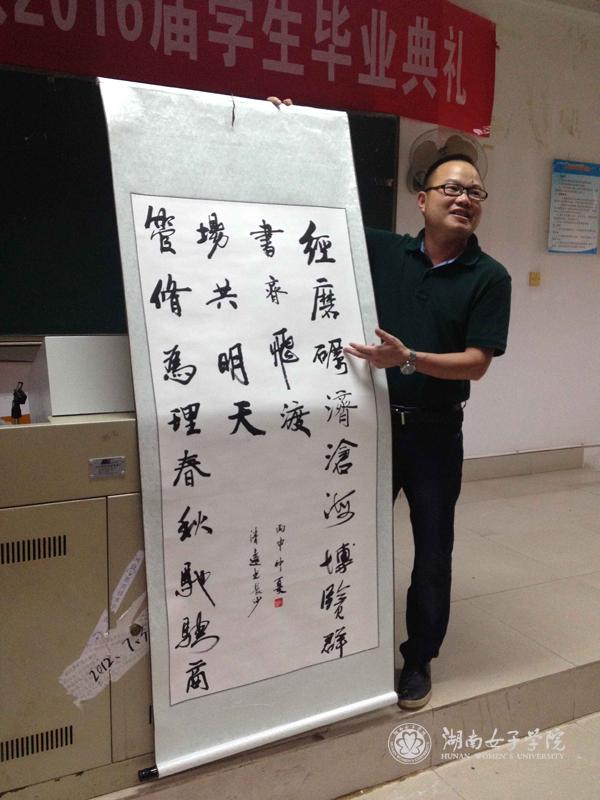 2016届学生毕业典礼
經磨礪濟滄海博覽群
書齊飛渡
管修為理春秋馳騁商
場共明天
丙申仲夏
清遠书長沙
湖南女子学院
HUNAN WOMEN'S UNIVERSITY